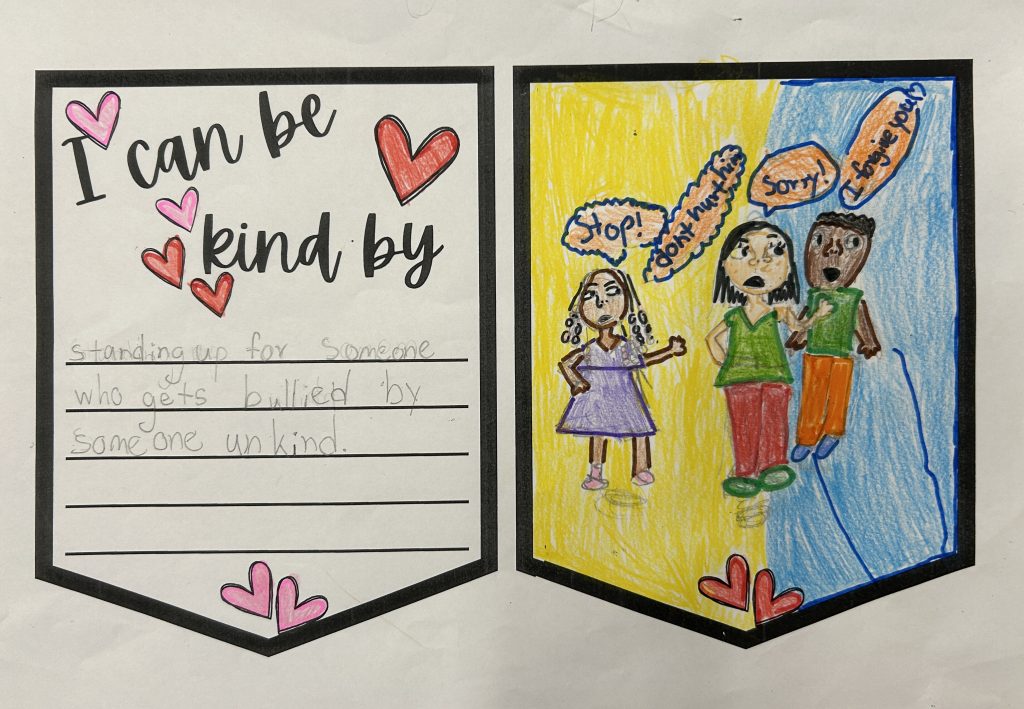 I can be
kind by
standing up for someone
who gets bullied by
someone unkind.
Stop!
dont hurt him
Sorry!
I forgive you